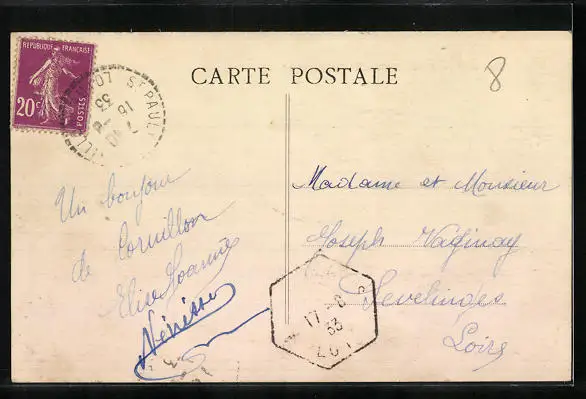 RÉPUBLIQUE FRANÇAISE
20c
POSTES
CARTE POSTALE
8
Un bonjour
de Cornillon
Elise Joannie
Nénesse
Madame et Monsieur
Joseph Vaginay
Sevelinges
Loire
17-8
33